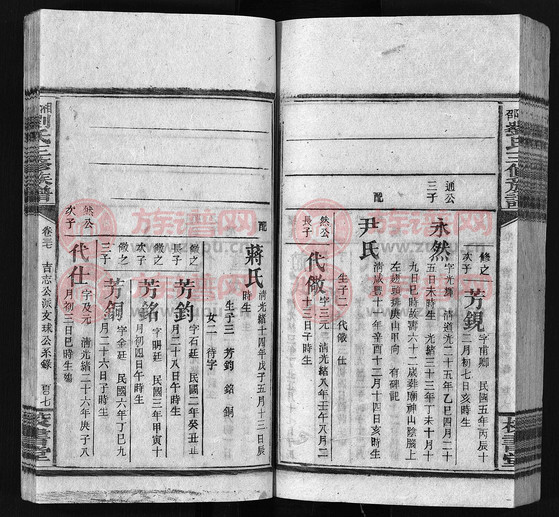 修之
次子
芳鋧
字甫卿 民國五年丙辰十
二月初七日亥時生
通公
三子
永然
字光輝 清道光二十五年乙巳四月二十
五日未時生 光緒三十三年丁未十月十
九日巳時故壽六十二歲葬廟神山陰腦上
庚山甲向 有碑記
配
尹氏
清咸豐十一年辛酉十二月十四日亥時生
生子二 代徵 仕
然公
長子
代徵
字三元 清光緒八年壬午八月二
十三日子時生
配
蔣氏
清光緒十四年戊子五月十三日辰
時生
生子三 芳鈞 銘 銅
女二 待字
徵之
長子
芳鈞
字石廷 民國二年癸丑正
月二十八日午時生
徵之
次子
芳銘
字明廷 民國三年甲寅十
月初四日午時生
徵之
三子
芳銅
字金廷 民國六年丁巳九
月二十六日午時生
然公
次子
代仕
字及元 清光緒二十六年庚子八
月初三日巳時生
劉氏三修族譜
卷三七 吉志公派文球公系錄
族谱网
www.zupu.cn